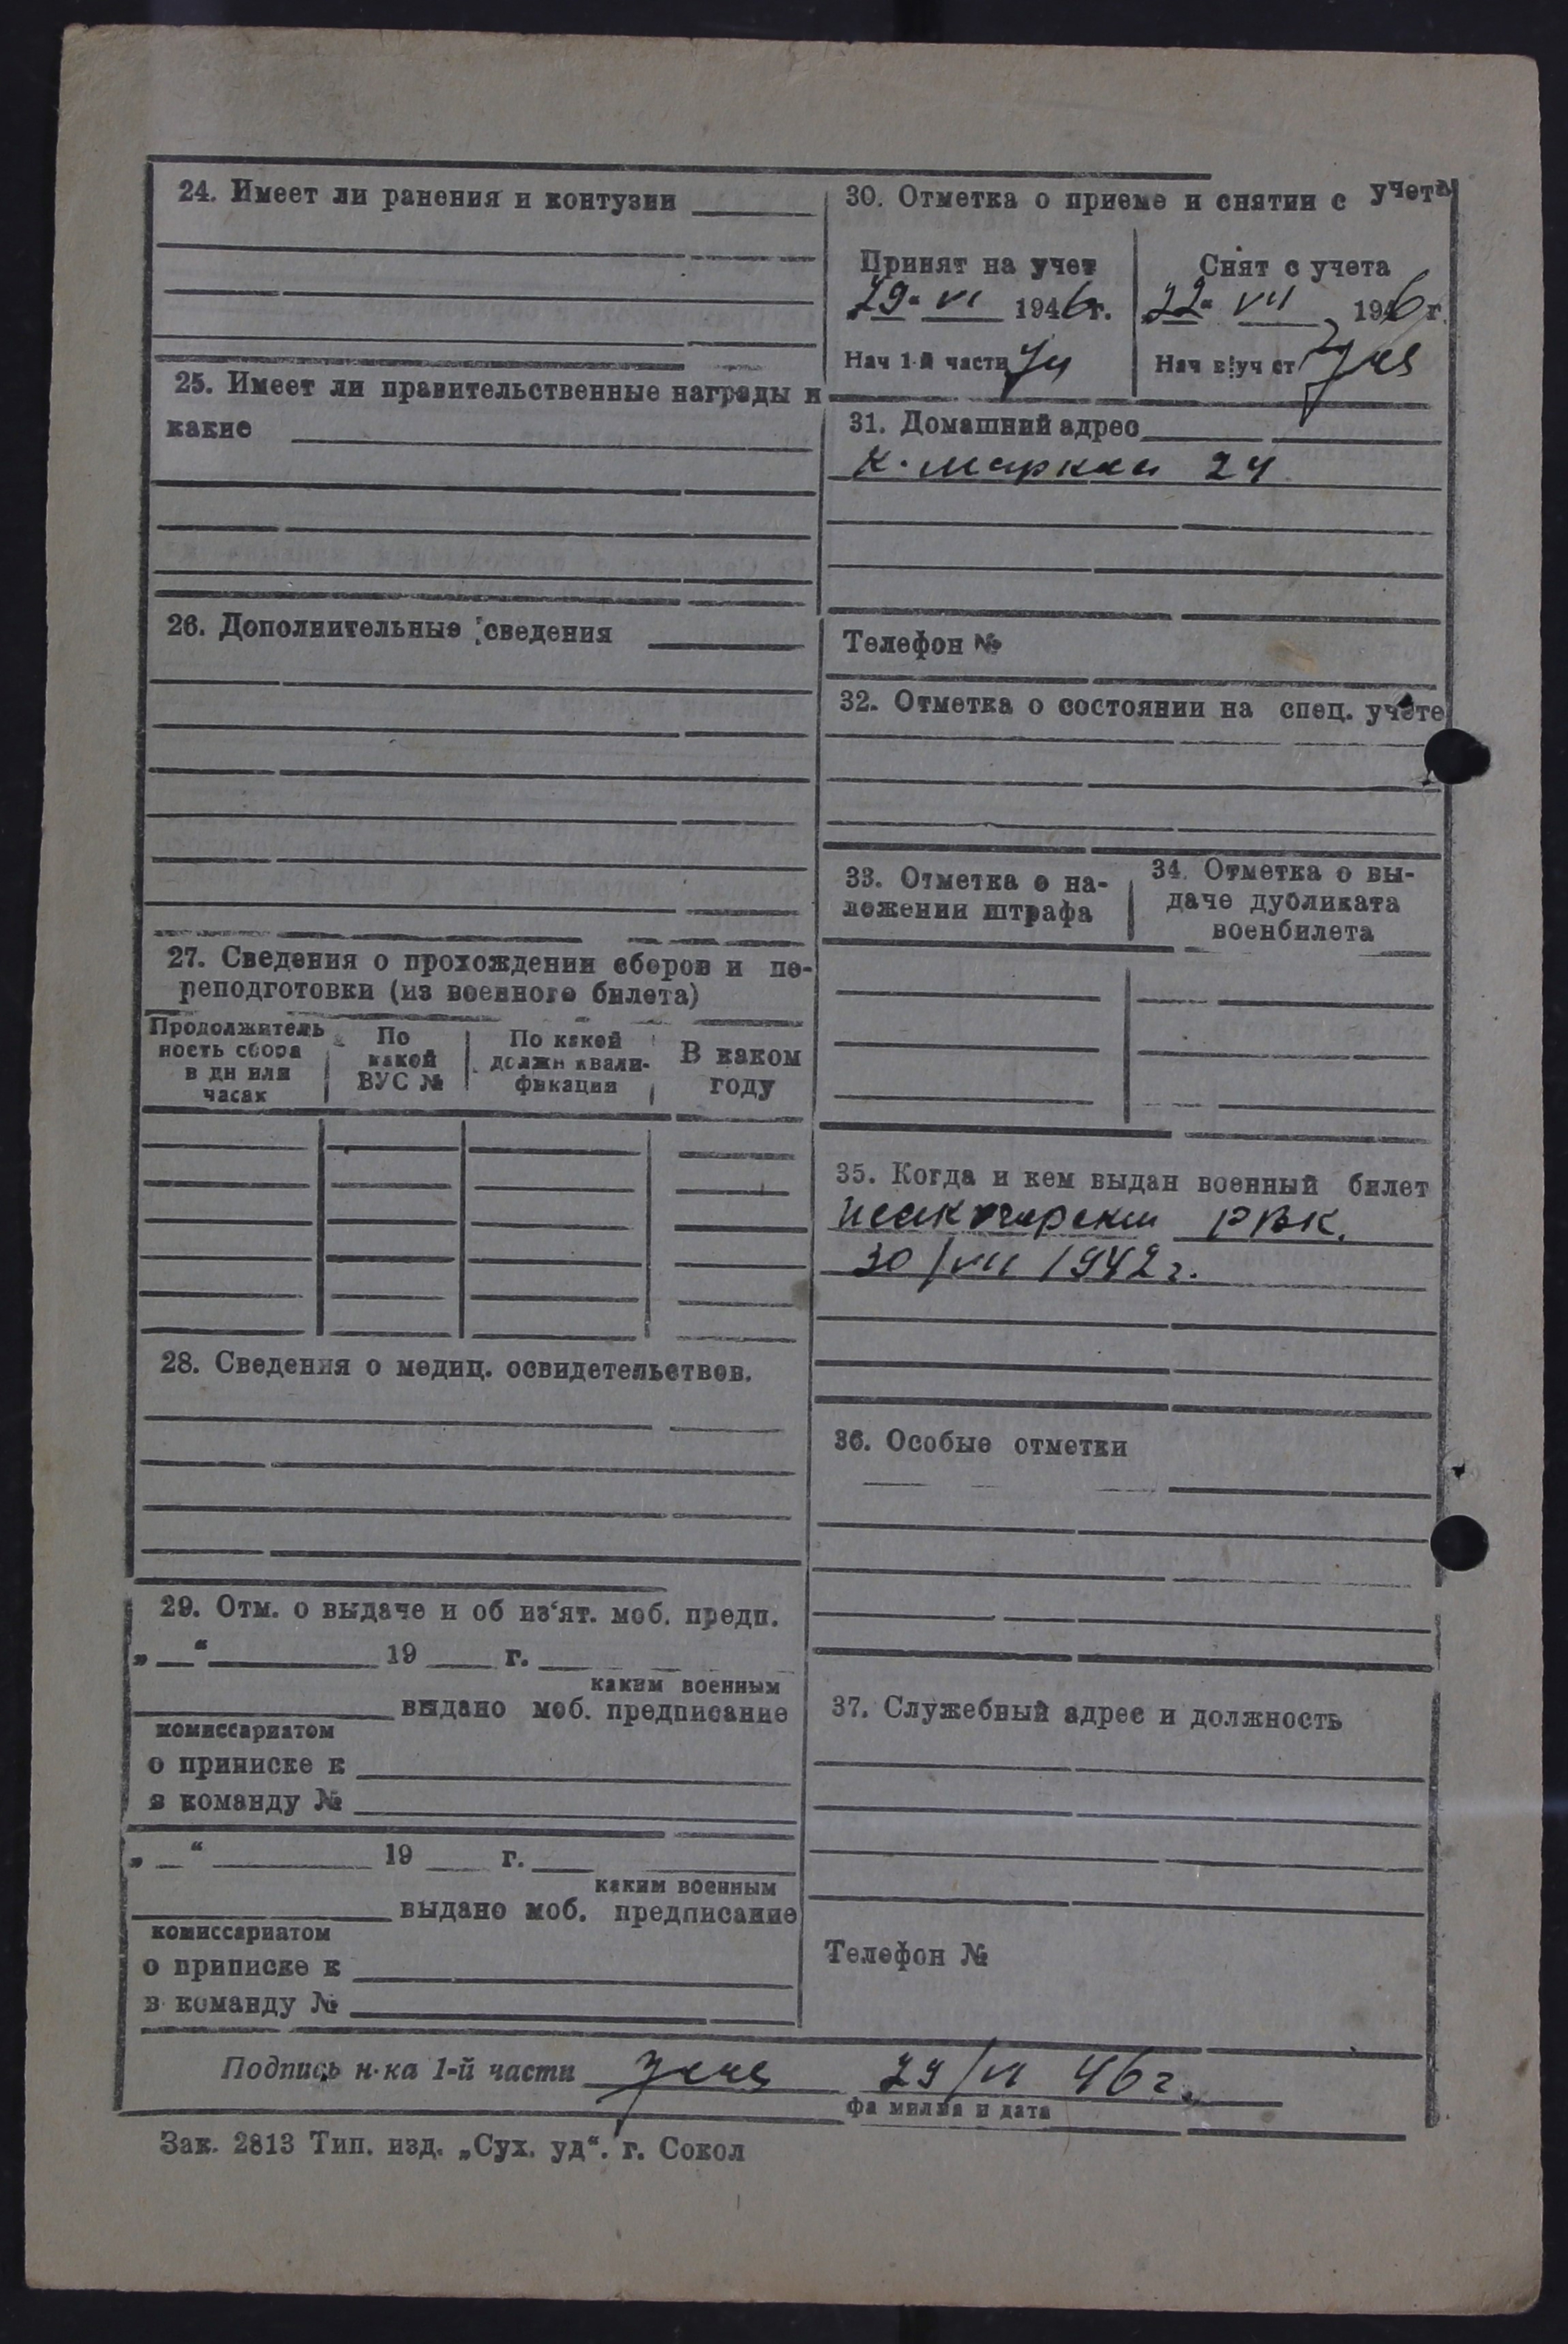 24. Имеет ли ранения и контузии
25. Имеет ли правительственные награды и
какие
26. Дополнительные сведения
27. Сведения о прохождении сборов и пе-
реподготовки (из военного билета)
Продолжитель
ность сбора
в дн или
часах
По
какой
ВУС №
По какой
должн квали-
фикации
В каком
году
28. Сведения о медиц. освидетельствов.
29. Отм. о выдаче и об из‘ят. моб. предп.
„ “ 19 г.
каким военным
выдано моб. предписание
комиссариатом
о приписке к
в команду №
„ “ 19 г.
каким военным
выдано моб. предписание
комиссариатом
о приписке к
в команду №
30. Отметка о приеме и снятии с учета
Принят на учет
29 VI 1946г.
Нач 1-й части
Снят с учета
22 VII 1946г.
Нач в|уч ст
31. Домашний адрес
К. Маркса 24
Телефон №
32. Отметка о состоянии на спец. учете
33. Отметка о на-
ложении штрафа
34. Отметка о вы-
даче дубликата
военбилета
35. Когда и кем выдан военный билет
РВК.
30/VII 1942 г.
36. Особые отметки
37. Служебный адрес и должность
Телефон №
Подпись н-ка 1-й части 29/VI 46 г.
фамилия и дата
Зак. 2813 Тип. изд. „Сух. уд“. г. Сокол